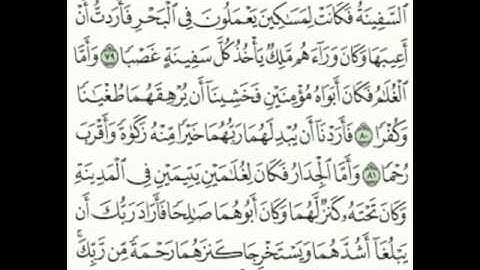 ٱلسَّفِينَةُ فَكَانَتۡ لِمَسَٰكِينَ يَعۡمَلُونَ فِي ٱلۡبَحۡرِ فَأَرَدتُّ أَنۡ
أَعِيبَهَا وَكَانَ وَرَآءَهُم مَّلِكٞ يَأۡخُذُ كُلَّ سَفِينَةٍ غَصۡبٗا ٧٩ وَأَمَّا
ٱلۡغُلَٰمُ فَكَانَ أَبَوَاهُ مُؤۡمِنَيۡنِ فَخَشِينَآ أَن يُرۡهِقَهُمَا طُغۡيَٰنٗا
وَكُفۡرٗا ٨٠ فَأَرَدۡنَآ أَن يُبۡدِلَهُمَا رَبُّهُمَا خَيۡرٗا مِّنۡهُ زَكَوٰةٗ وَأَقۡرَبَ
رُحۡمٗا ٨١ وَأَمَّا ٱلۡجِدَارُ فَكَانَ لِغُلَٰمَيۡنِ يَتِيمَيۡنِ فِي ٱلۡمَدِينَةِ
وَكَانَ تَحۡتَهُۥ كَنزٞ لَّهُمَا وَكَانَ أَبُوهُمَا صَٰلِحٗا فَأَرَادَ رَبُّكَ أَن
يَبۡلُغَآ أَشُدَّهُمَا وَيَسۡتَخۡرِجَا كَنزَهُمَا رَحۡمَةٗ مِّن رَّبِّكَۚ